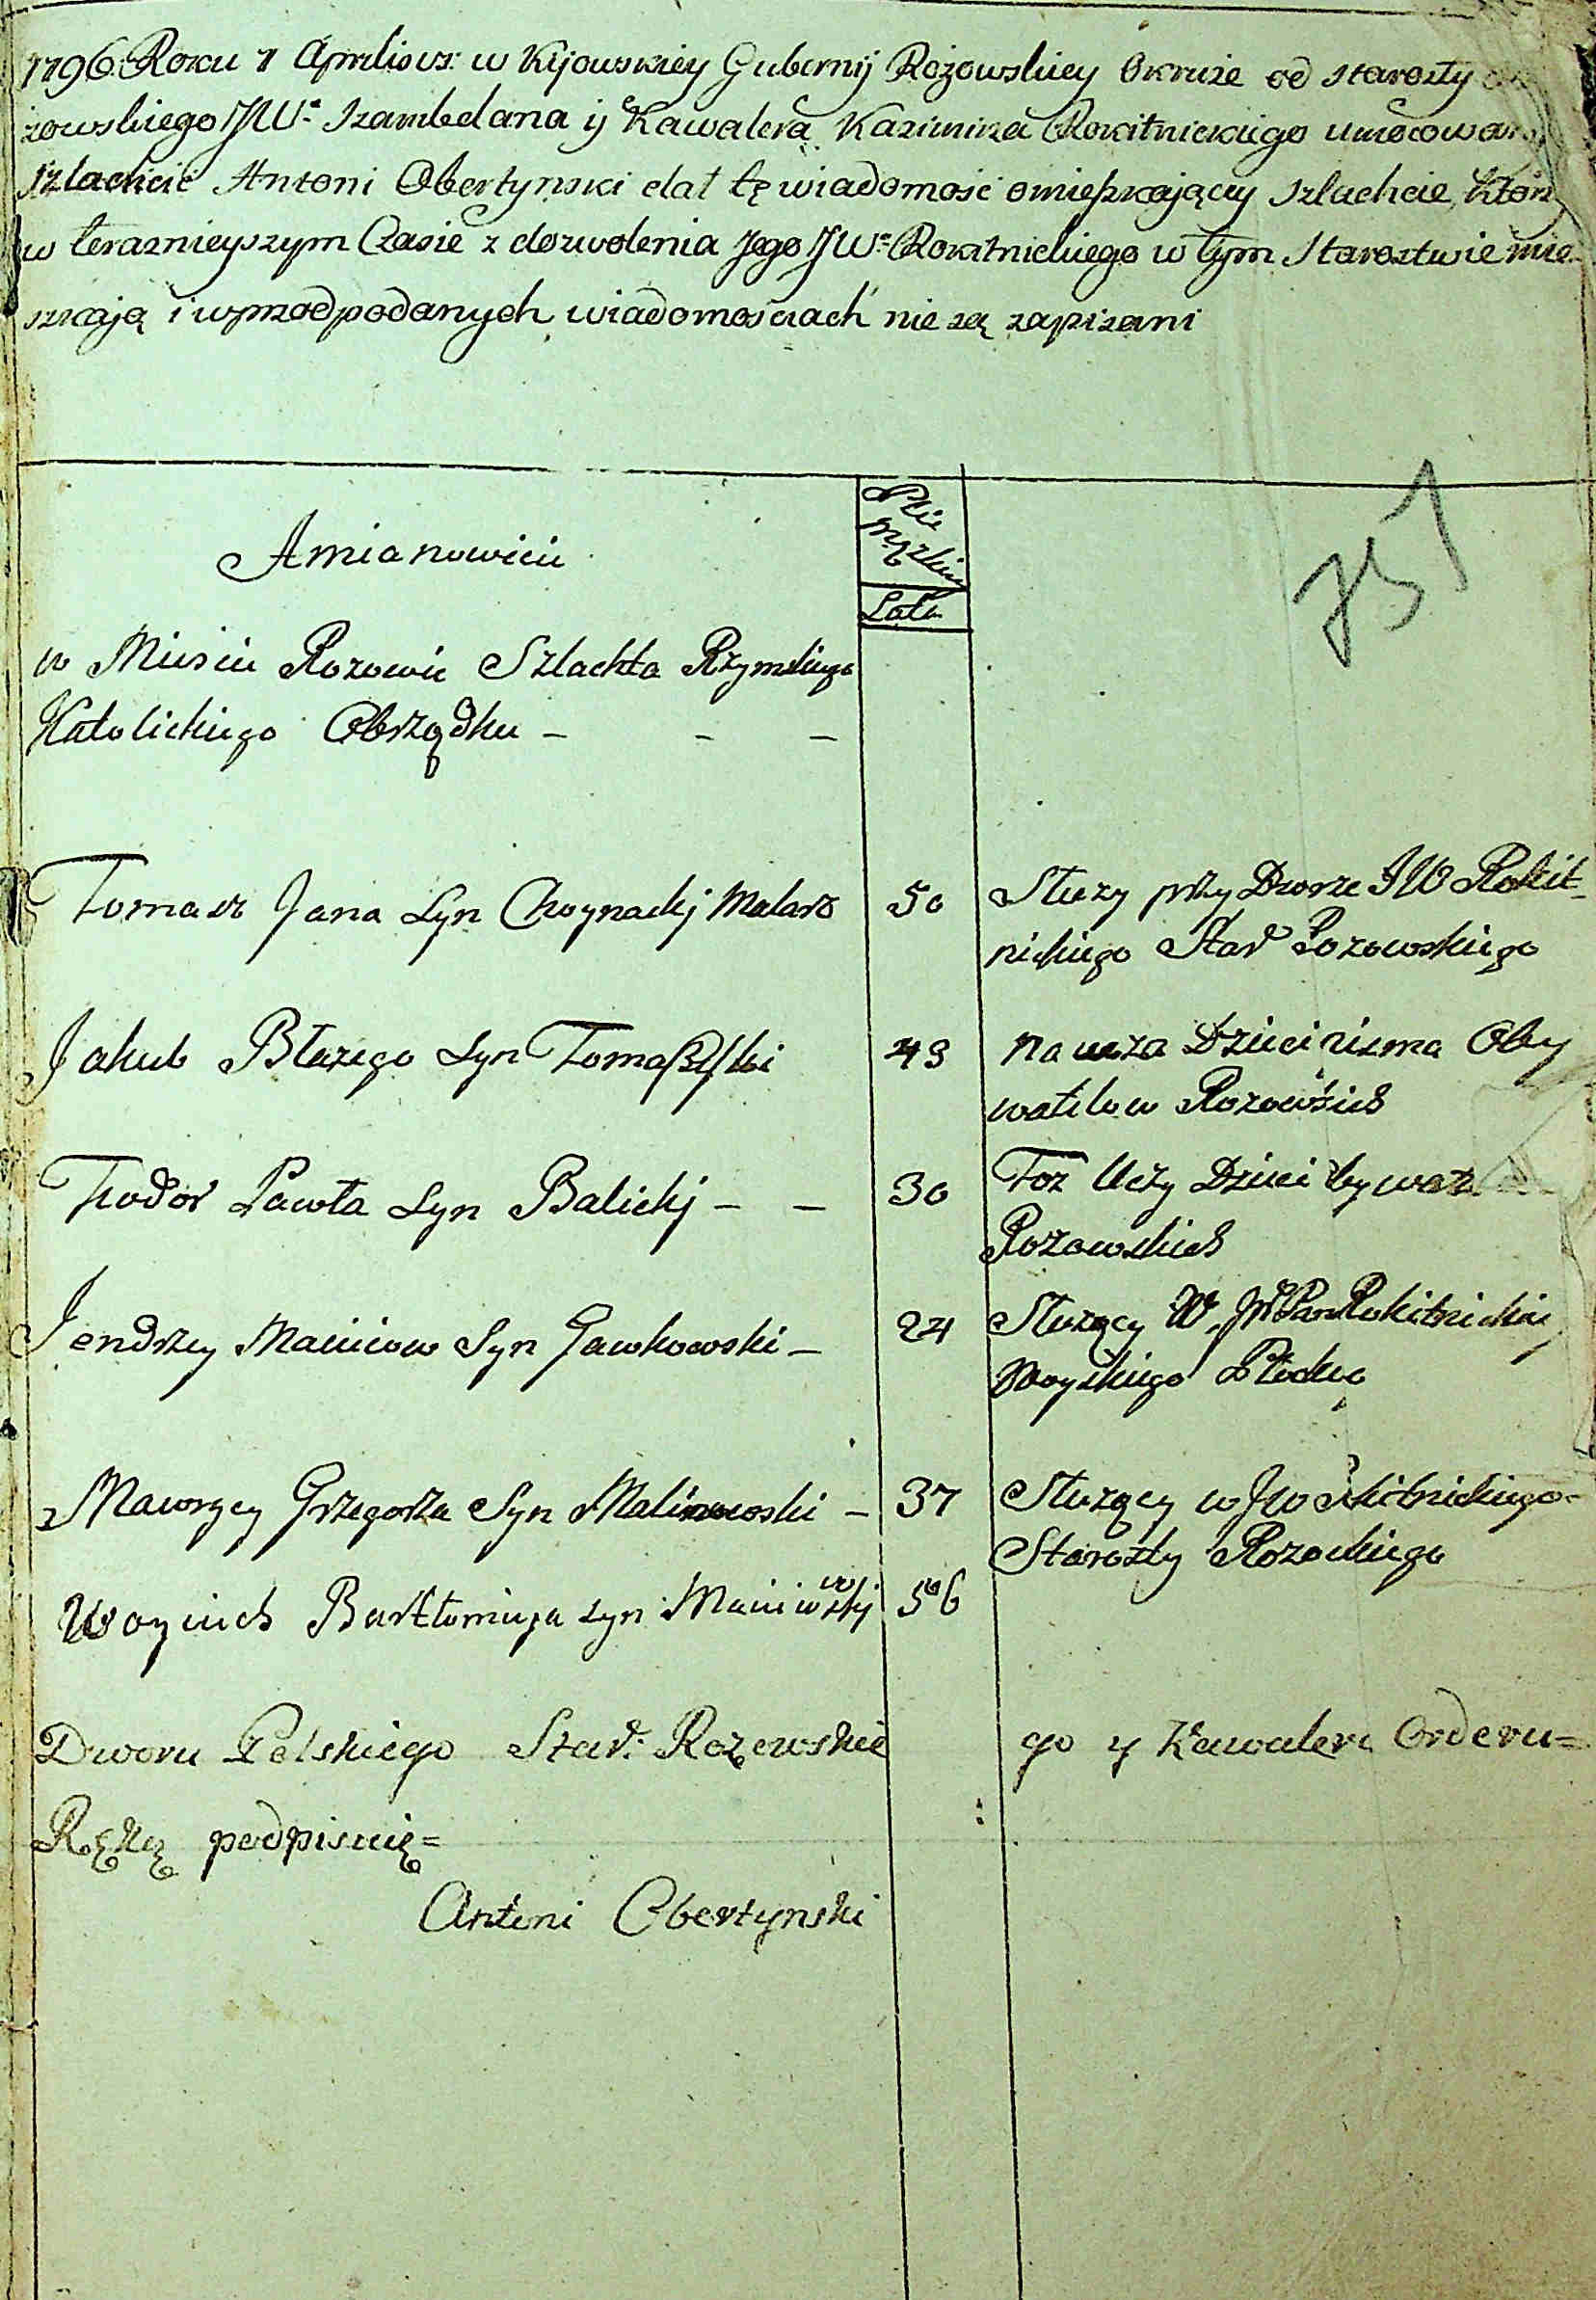 1796 Roku 1 Aprilis vs: w Kijowskiey Gubernij Rożowskiey Okruże od starosty
żowskiego JWo Szambelana ij Kawalera Kazimirza Rokitnickiego umocowan
szlachcic Antoni Obertynski dał tę wiadomość o mieszkaiącey szlachcie, któr
w teraznieyszym Czasie z dozwolenia Jego JWo Rokitnickiego w tym Starostwie mie
szkają i wprzod podanych wiadomosciach nie są zapisani
Płci
Męzkiey
A mianowicie
Lata
w Miescie Rozowie Szlachta Rzymskiego
Katolickiego Obrządku - - -
Tomasz Jana Syn Choynackj Malarz 50 Służy przy Dworze JW Rokit-
nickiego Star Rozowskiego
Jakub Błazego Syn Tomaszeski 43 naucza Dzieci pisma Oby
watelow Rozowskich
Teodor Pawła Syn Balickj - - 30 Toz Uczy Dzieci
Rozowskich
Jendrzy Macieiow Syn Gawkowski - 24 Służący W. Rokitnickie
Woyskiego
Mawrycy Grzegorza Syn Malinowski - 37 Służący w JW Rokitnickiego
Starosty
Woyciech Bartłomieja Syn 56
Dworu Polskiego Star: Rożewskie go y Kawalera Orderu=
Ręką podpisuię=
Antoni Obertynski